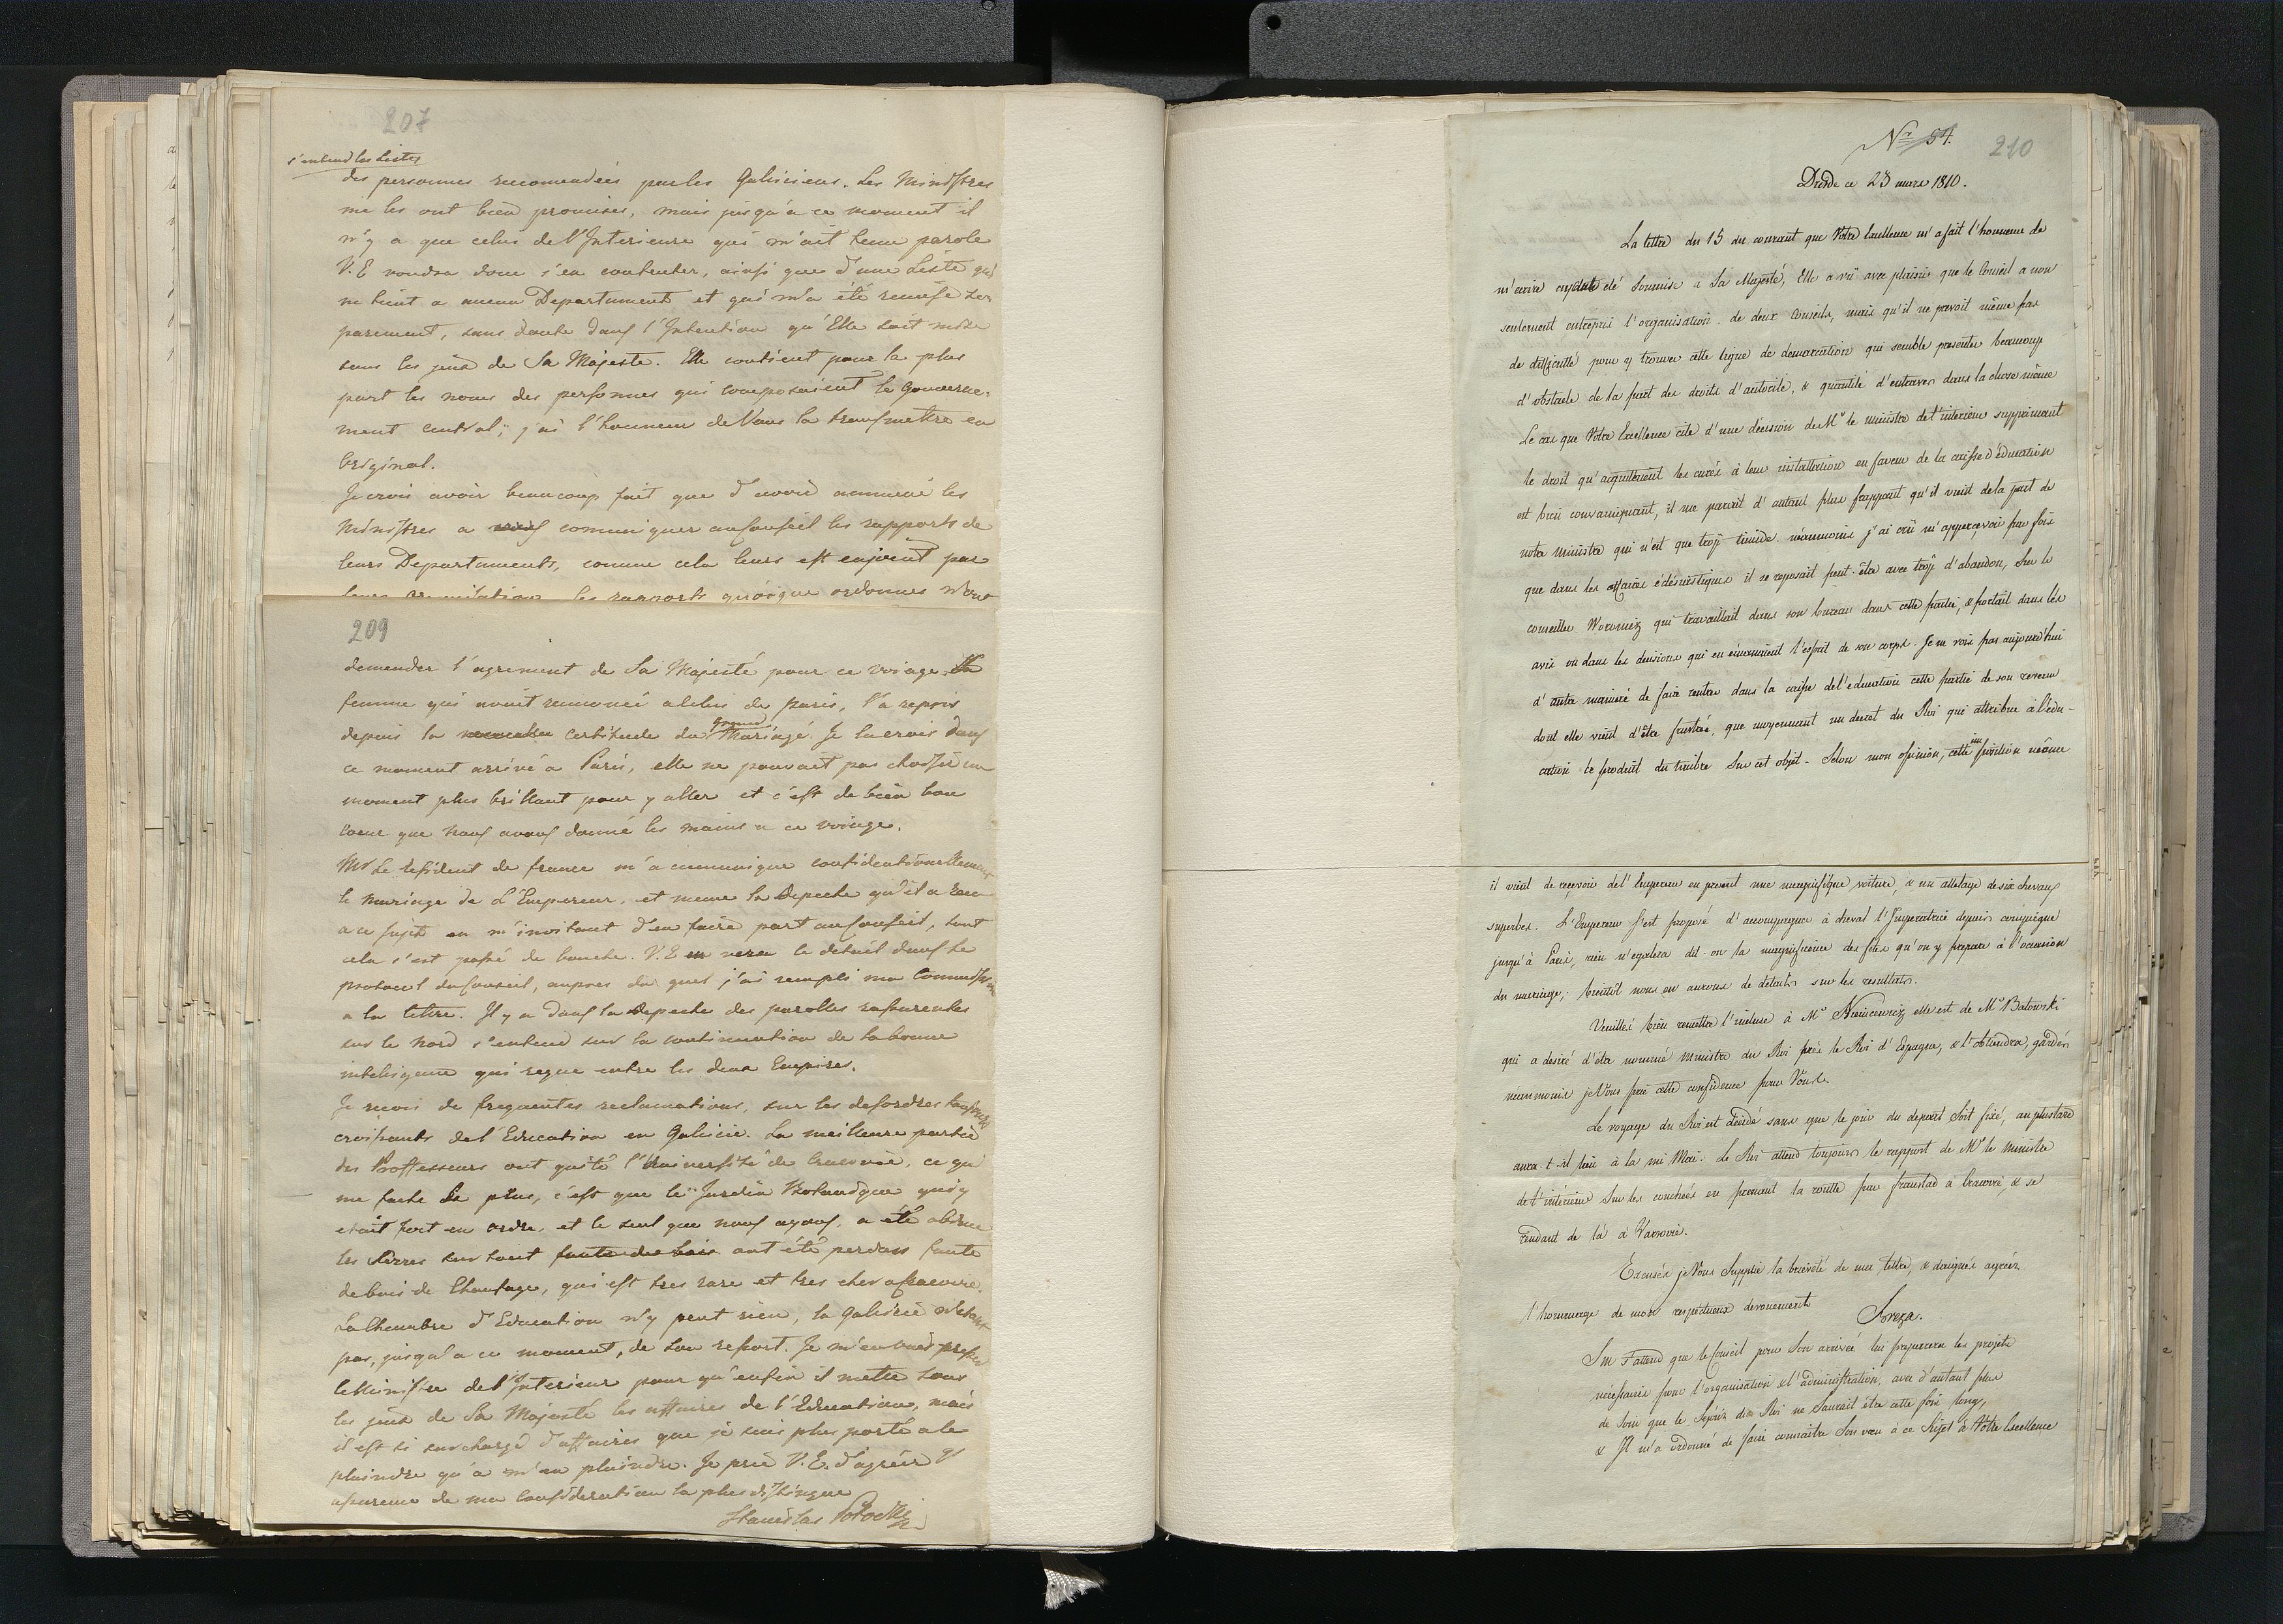 207
s'entend les Listes
des personnes recomendées par les Galiciens. Les Ministres
me les ont bien promises, mais jusqu'a ce moment il
n'y a que celui de l'Interieure qui m'ait tenu parole
V. E voudra donc s'en contenter, ainsi que d'une Liste qui
ne tient a aucun Departement et qui m'a été remise se
parement, sans doute dans l'Intention qu'Elle soit mise
sous les jeux de Sa Majeste. Elle contient pour la plus
part les noms des personnes qui composoient le Gouverne-
ment central; j'ai l'honneur de Vous la transmettre en
Original.
Je crois avoir beaucoup fait que d'avoir accoutumé les
Ministres a comuniquer au Conseil les rapports de
leurs Departements, comme cela leurs est enjoint par
les rapports quoique ordonnes n'ont
209
demender l'agrement de Sa Majesté pour ce voiage. Sa
femme qui avoit renoncé a celui de Paris, l'a repris
depuis la certitude du grand Mariage. Je la crois dans
ce moment arrivé a Paris, elle ne pouvait pas choisir un
moment plus brillant pour y aller et c'est de bien bon
coeur que nous avons donné les mains a ce voiage.
Mr le resident de france m'a communique confidentionellement
le mariage de L'Empereur, et meme la depeche qu'il a recu
a ce sujet en m'invitant d'en faire part au Conseil, tout
cela s'est passé de bouche. V. E en verra le detail dans le
protocol du Conseil, aupres du quel j'ai rempli ma Commission
a la lettre. Il y a dans la depeche des parolles rassurentes
sur le Nord s'entend sur la continuation de la bonne
inteligence qui regne entre les deux Empires.
Je recois de frequentes reclamations, sur les desordres toujours
croissants de l'Education en Galicie. La meilleure partie
des Proffesseurs ont quité l'Université de Cracovie, ce qui
me fache de plus, c'est que le Jardin Botanique qui y
etait fort en ordre, et le seul que nous ayons, a été abimé
les Serres sur tout ont été perdues faute
de bois de Chaufage, qui est tres rare et tres cher a Cracovie.
La Chambre d'Education n'y peut rien, la Galicie n'etant
pas, jusqu'a ce moment, de son resort. Je m'en vais presser
le Ministre de l'Interieur pour qu'enfin il mette sous
les jeux de Sa Majesté les affaires de l'Education, mais
il est si surchargé d'affaires que je suis plus porté a le
plaindre qu'a m'en plaindre. Je prie V. E. d'agréer l'
assurence de ma Consideration la plus distingue
Stanislas Potocki
Nr 54.
210
Dresde ce 23 mars 1810.
La lettre du 15 du courant que Votre Excellence m'a fait l'honneur de
m'ecrire été soumise a Sa Majesté, Elle a vû avec plaisir que le Conseil a non
seulement entrepris l'organisation de deux Conseils, mais qu'il ne prevoit même pas
de difficulté pour y trouver cette ligne de demarcation qui semble presenter beaucoup
d'obstacle de la part des droits d'autorité, & quantité d'entraves dans la chose même
Le cas que Votre Excellence cite d'une decision de Mr le ministre de l'interieur supprimant
le droit qu'acquittoient les curés à leur installation en faveur de la caisse d'éducation
est bien convainquant, il me parait d'autant plus frappant qu'il vient de la part de
notre ministre qui n'est que trop timide. néanmoins j'ai crû m'appercevoir par fois
que dans les affaires éclésiastiques il se reposait peut-être avec trop d'abandon, sur le
conseiller Woronicz qui travaillait dans son bureau dans cette partie, & portait dans les
avis ou dans les decisions qui en émanaient l'esprit de son corps. Je ne vois pas aujourd'hui
d'autre maniere de faire rentrer dans la caisse de l'education cette partie de son revenu
dont elle vient d'être frustrée, que moyennant un decret du Roi qui attribue à l'edu-
cation le produit du timbre sur cet objet. Selon mon opinion, cette imposition même
il vient de recevoir de l'Empereur en present une magnifique voiture, & un attelage de six chevaux
superbes. L'Empereur s'est proposé d'accompagner à cheval l'Imperatrice depuis compiegne
jusqu'à Paris, rien n'egalera dit-on la magnificence des fêtes qu'on y prepare à l'occasion
du mariage; bientôt nous en aurons de details sur les resultats.
Veuillés bien remettre l'incluse à Mr Niemcewicz elle est de Mr Batowski
qui a desiré d'être nommé ministre du Roi près le Roi d'Espagne, & l'obtiendra, gardés
néanmoins je Vous prie cette confidence pour Vous.
Le voyage du Roi est décidé sans que le jour du depart soit fixé, au plustard
aura-t-il lieu à la mi Mai. Le Roi attend toujours le rapport de Mr le ministre
de l'intérieur sur les couchées en prenant la routte par fraustad à Cracovie, & se
rendant de là à Varsovie.
Excusés je Vous supplie la brièveté de ma lettre, & daignés agréer
l'hommage de mon respectueux devouement
Breza.
S M s'attend que le Conseil pour Son arrivée lui preparera les projets
nécessaires pour l'organisation & l'administration, avec d'autant plus
de soin que le Sejour du Roi ne saurait être cette fois long,
& Il m'a ordonné de faire connaitre Son vœu à ce sujet à Votre Excellence